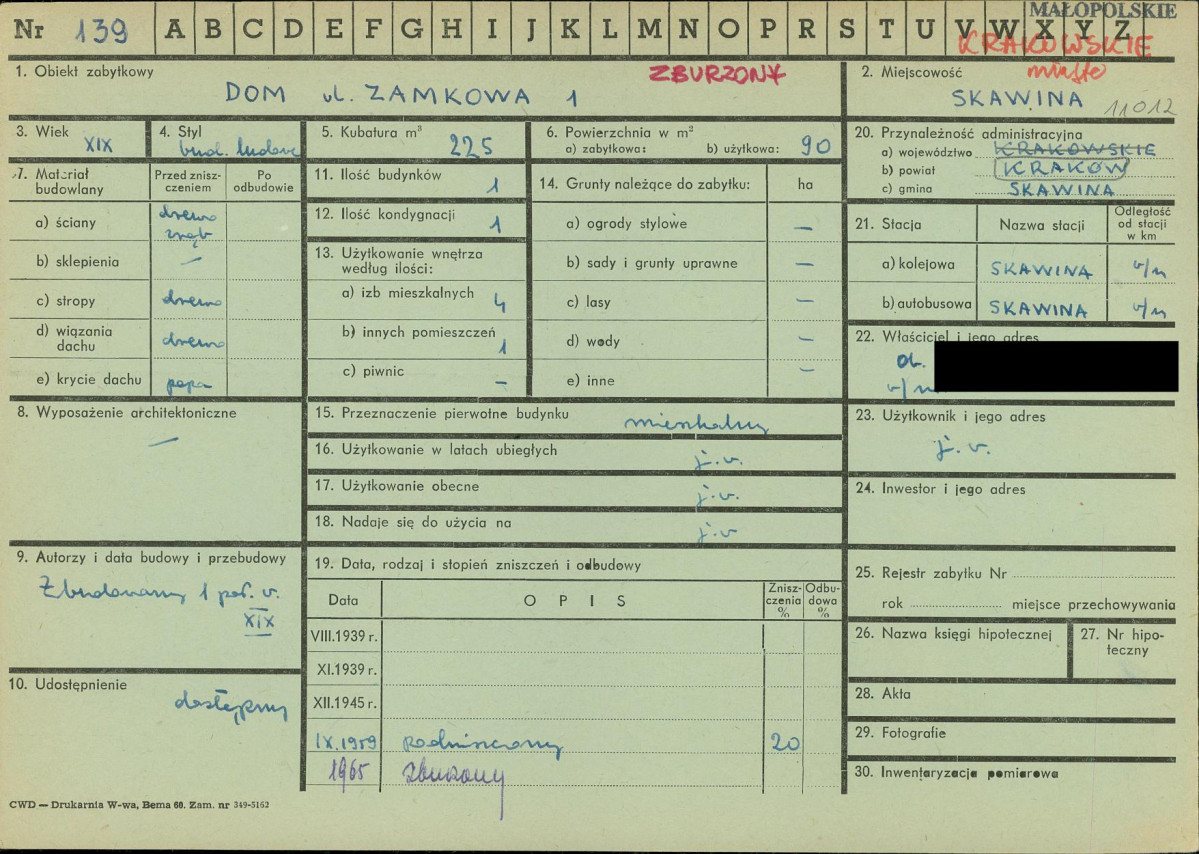 MAŁOPOLSKIE
Nr 139 A B C D E F G H I J K L M N O P R S T U V W X Y Z
KRAKOWSKIE
1. Obiekt zabytkowy
ZBURZONY
DOM ul. ZAMKOWA 1
2. Miejscowość
miasto
SKAWINA 11012
3. Wiek
XIX
4. Styl
bud. ludowe
5. Kubatura m³
225
6. Powierzchnia w m²
a) zabytkowa: b) użytkowa: 90
20. Przynależność administracyjna
a) województwo KRAKOWSKIE
b) powiat KRAKÓW
c) gmina SKAWINA
7. Materiał budowlany
Przed znisz-
czeniem
Po
odbudowie
a) ściany drewno
zrąb
b) sklepienia —
c) stropy drewno
d) wiązania
dachu drewno
e) krycie dachu papa
11. Ilość budynków 1
12. Ilość kondygnacji 1
13. Użytkowanie wnętrza
według ilości:
a) izb mieszkalnych 4
b) innych pomieszczeń
1
c) piwnic —
14. Grunty należące do zabytku: ha
a) ogrody stylowe —
b) sady i grunty uprawne —
c) lasy —
d) wody —
e) inne —
21. Stacja Nazwa stacji
Odległość
od stacji
w km
a) kolejowa SKAWINA v/m
b) autobusowa SKAWINA v/m
22. Właściciel i jego adres
ob.
v/m
8. Wyposażenie architektoniczne
—
15. Przeznaczenie pierwotne budynku mieszkalny
16. Użytkowanie w latach ubiegłych j.w.
17. Użytkowanie obecne j.w.
18. Nadaje się do użycia na j.w
23. Użytkownik i jego adres
j.w.
24. Inwestor i jego adres
9. Autorzy i data budowy i przebudowy
Zbudowany 1 poł. w.
XIX
19. Data, rodzaj i stopień zniszczeń i odbudowy
Data OPIS
Znisz-
czenia
%
Odbu-
dowa
%
VIII.1939 r.
XI.1939 r.
XII.1945 r.
IX.1959 podniszczony 20
1965 zburzony
25. Rejestr zabytku Nr
rok miejsce przechowywania
26. Nazwa księgi hipotecznej
27. Nr hipo-
teczny
10. Udostępnienie
dostępny
28. Akta
29. Fotografie
30. Inwentaryzacja pomiarowa
CWD — Drukarnia W-wa, Bema 60. Zam. nr 349-5162